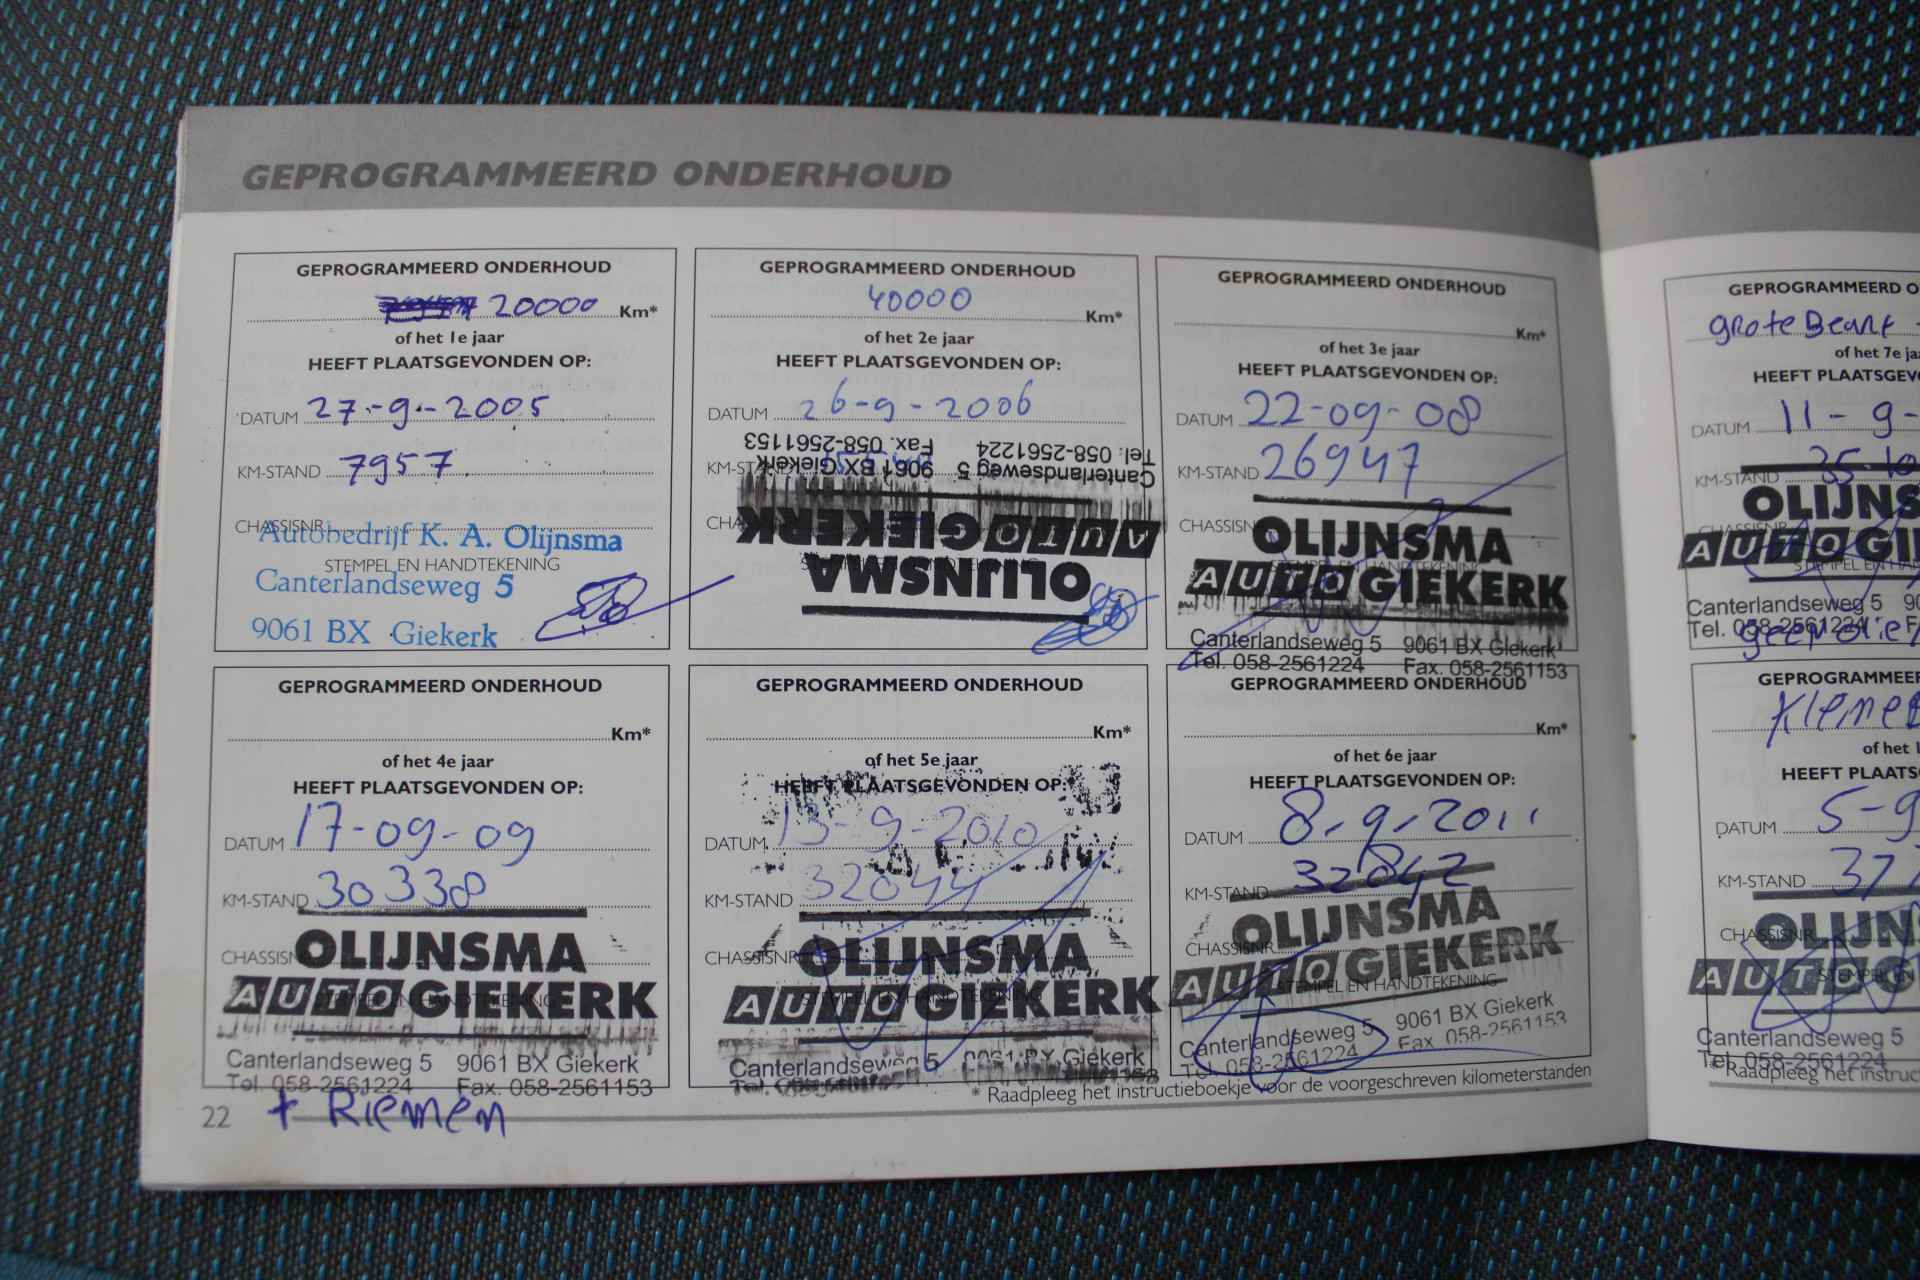 GEPROGRAMMEERD ONDERHOUD
GEPROGRAMMEERD ONDERHOUD
20000 Km*
of het 1e jaar
HEEFT PLAATSGEVONDEN OP:
DATUM 27-9-2005
KM-STAND 7957
CHASSISNR.
Autobedrijf K. A. Olijnsma
STEMPEL EN HANDTEKENING
Canterlandseweg 5
9061 BX Giekerk
GEPROGRAMMEERD ONDERHOUD
40000
Km*
of het 2e jaar
HEEFT PLAATSGEVONDEN OP:
DATUM 26-9-2006
KM-STAND
OLIJNSMA
AUTO GIEKERK
Canterlandseweg 5 9061 BX Giekerk
Tel. 058-2561224 Fax. 058-2561153
GEPROGRAMMEERD ONDERHOUD
Km*
of het 3e jaar
HEEFT PLAATSGEVONDEN OP:
DATUM 22-09-08
KM-STAND 26947
CHASSISN
OLIJNSMA
AUTO GIEKERK
Canterlandseweg 5 9061 BX Giekerk
Tel. 058-2561224 Fax. 058-2561153
GEPROGRAMMEERD ONDERHOUD
Km*
of het 4e jaar
HEEFT PLAATSGEVONDEN OP:
DATUM 17-09-09
KM-STAND 30338
CHASSISN
OLIJNSMA
AUTO GIEKERK
STEMPEL EN HANDTEKENING
Canterlandseweg 5 9061 BX Giekerk
Tel. 058-2561224 Fax. 058-2561153
+ Riemen
GEPROGRAMMEERD ONDERHOUD
Km*
of het 5e jaar
HEEFT PLAATSGEVONDEN OP:
DATUM 13-9-2010
KM-STAND 32044
CHASSISNR
OLIJNSMA
AUTO GIEKERK
STEMPEL EN HANDTEKENING
Canterlandseweg 5 9061 BX Giekerk
GEPROGRAMMEERD ONDERHOUD
Km*
of het 6e jaar
HEEFT PLAATSGEVONDEN OP:
DATUM 8-9-2011
KM-STAND 32842
CHASSISNR.
OLIJNSMA
AUTO GIEKERK
STEMPEL EN HANDTEKENING
Canterlandseweg 5 9061 BX Giekerk
Tel. 058-2561224 Fax 058-2561153
* Raadpleeg het instructieboekje voor de voorgeschreven kilometerstanden
22
GEPROGRAMMEERD O
grote Beurt
of het 7e ja
HEEFT PLAATSGEV
DATUM 11-9-
KM-STAND 35.10
OLIJNS
AUTO GI
Canterlandseweg 5 90
Tel. 058-2561224 F
GEPROGRAMMEER
Kleine
of het
HEEFT PLAATS
DATUM 5-9
KM-STAND 37
CHASSISNR.
OLIJN
AUTO G
STEMPEL EN
Canterlandseweg 5
Tel. 058-2561224
* Raadpleeg het instruc